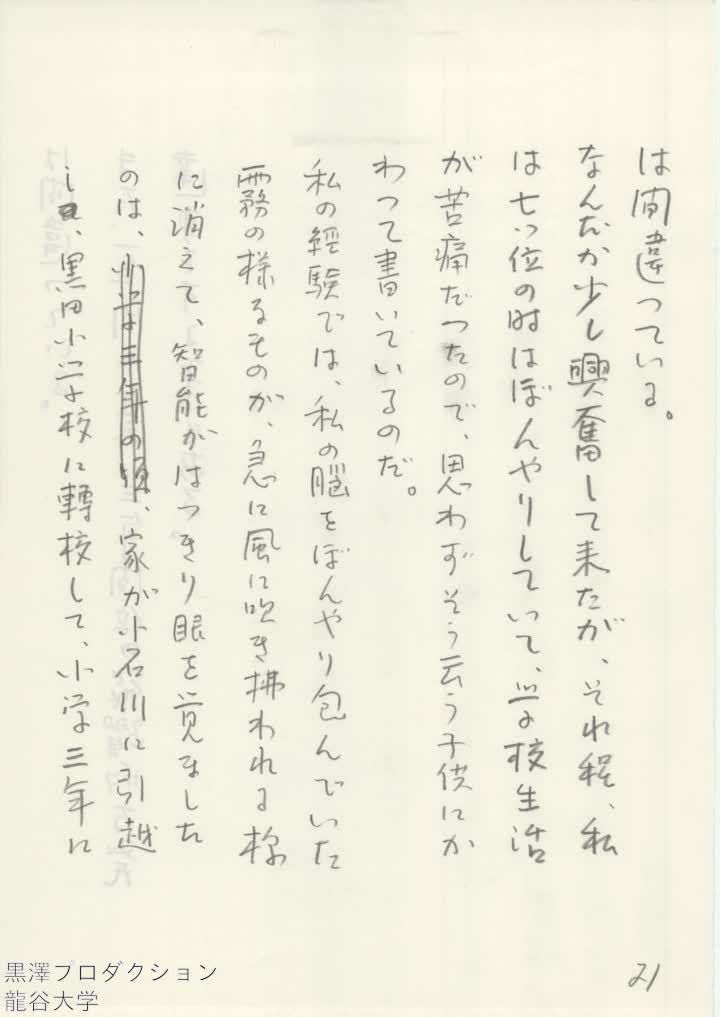 は間違つている。
なんだか少し興奮して来たが、それ程、私
は七つ位の時はぼんやりしていて、学校生活
が苦痛だつたので、思わずそう云う子供にか
わつて書いているのだ。
私の経験では、私の脳をぼんやり包んでいた
霧の様るものが、急に風に吹き拂われる様
に消えて、智能がはつきり眼を覚ました
のは、小学三年の頃、家が小石川に引越
し、黒田小学校に轉校して、小学三年に
21
黒澤プロダクション
龍谷大学